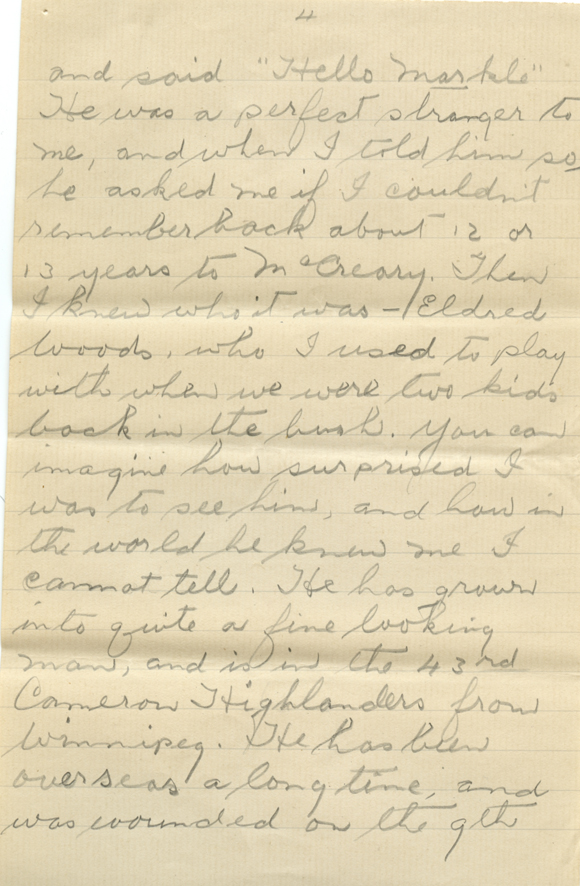 4
and said "Hello Markle"
He was a perfect stranger to
me, and when I told him so
he asked me if I couldn't
remember back about 12 or
13 years to McCreary. Then
I knew who it was - Eldred
Woods, who I used to play
with when we were two kids
back in the bush. You can
imagine how surprised I
was to see him, and how in
the world he knew me I
cannot tell. He has grown
into quite a fine looking
man, and is in the 43rd
Cameron Highlanders from
Winnipeg. He has been
overseas a long time, and
was wounded on the 9th